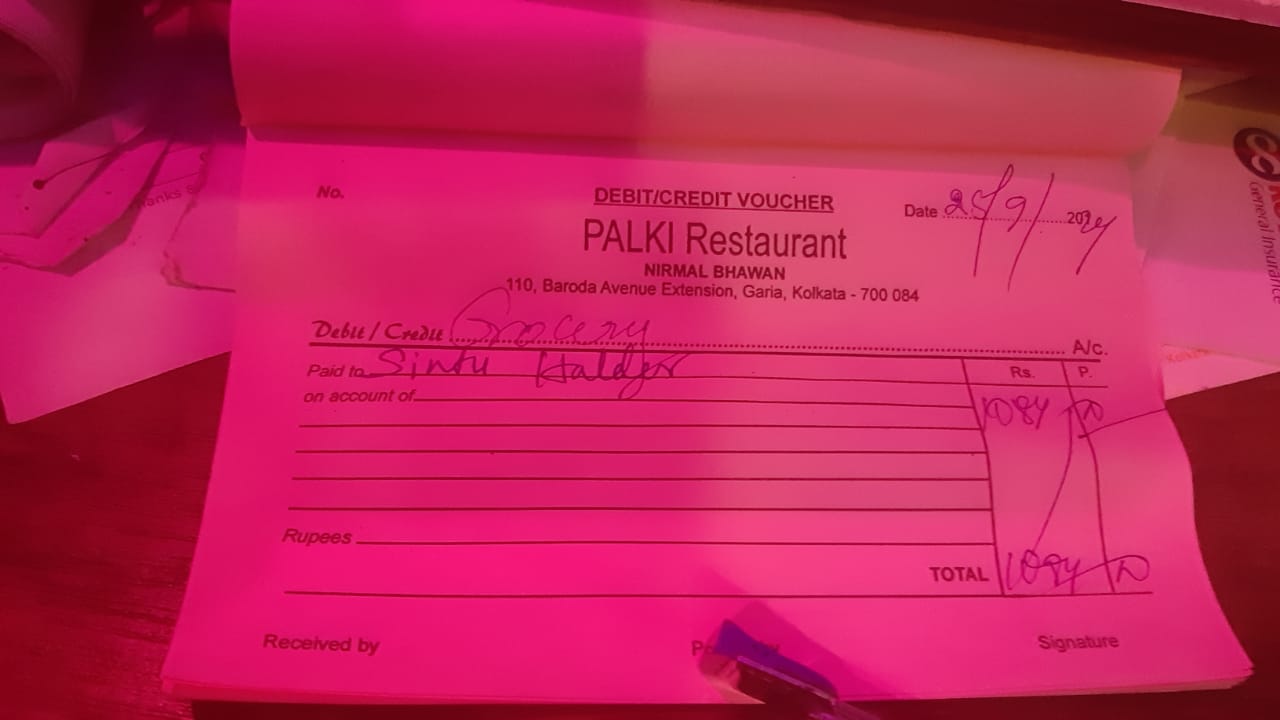 No.
DEBIT/CREDIT VOUCHER
Date 25/9/2024
PALKI Restaurant
NIRMAL BHAWAN
110, Baroda Avenue Extension, Garia, Kolkata - 700 084
Debit / Credit Grocery A/c.
Paid to Sintu Halder Rs. P.
on account of 1084
Rupees
TOTAL 1084
Received by Signature
General Insurance